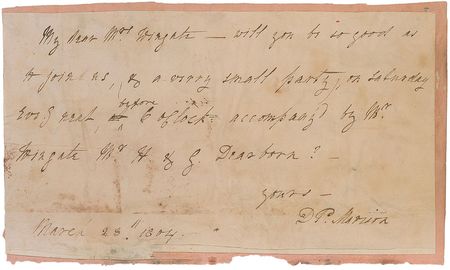 My dear Mrs. Wingate – will you be so good as
to join us, & a verry small party, on saturday
Evng next, before 6 oClock accompany'd by Mr.
Wingate Mr. H & G. Dearborn? –
yours –
D P. Madison
March 28th 1804.